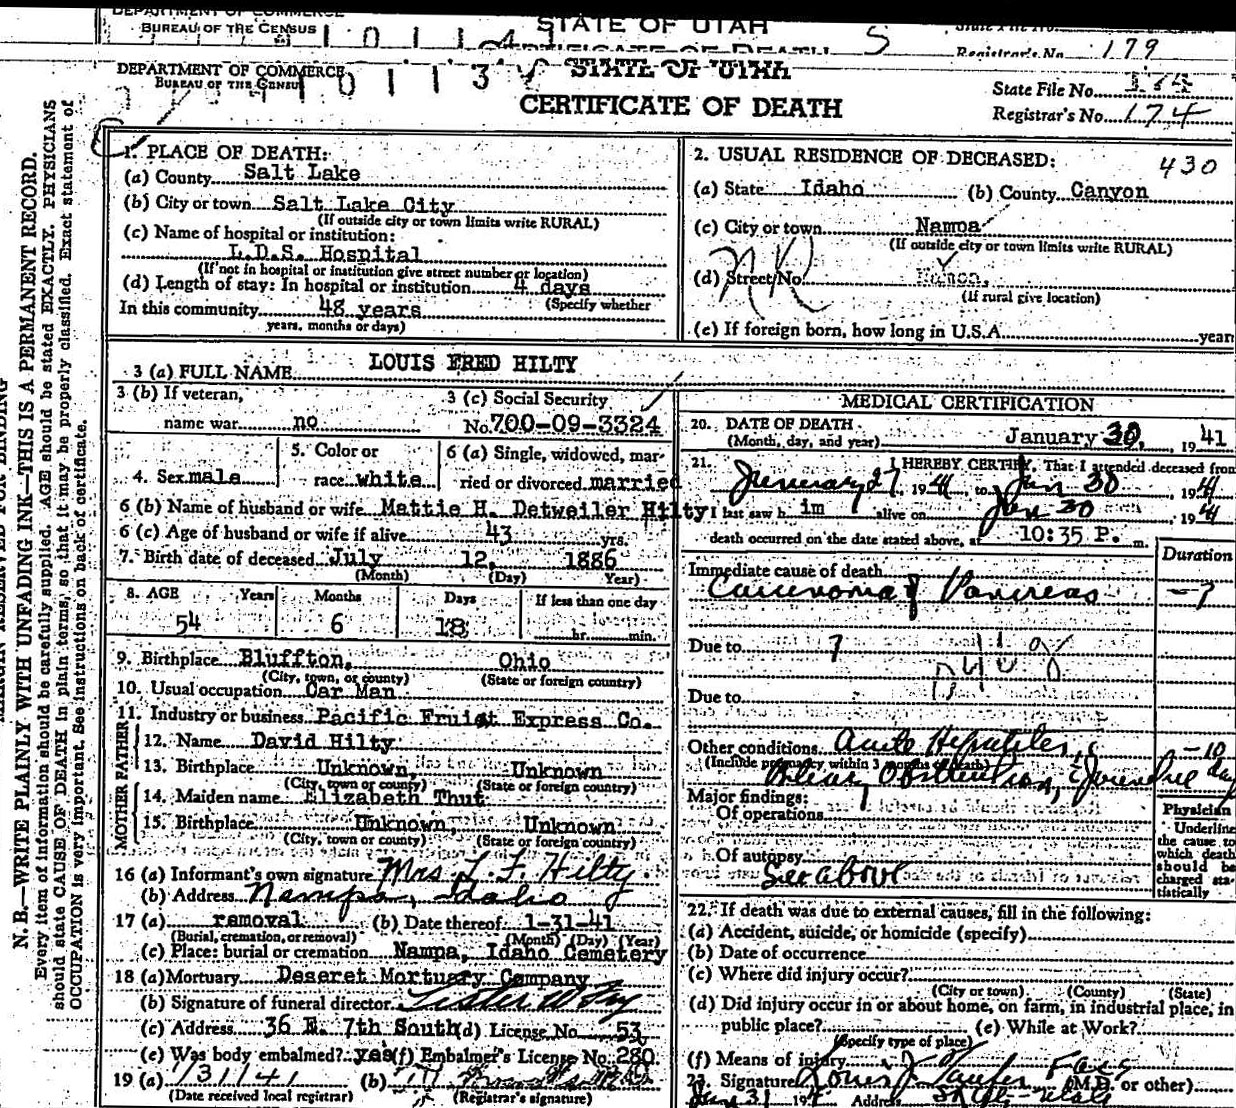 DEPARTMENT OF COMMERCE
BUREAU OF THE CENSUS
STATE OF UTAH
CERTIFICATE OF DEATH
S
Registrar's No. 179
DEPARTMENT OF COMMERCE
BUREAU OF THE CENSUS
STATE OF UTAH
CERTIFICATE OF DEATH
State File No.
Registrar's No. 174
N. B.—WRITE PLAINLY WITH UNFADING INK—THIS IS A PERMANENT RECORD.
Every item of information should be carefully supplied. AGE should be stated EXACTLY. PHYSICIANS
should state CAUSE OF DEATH in plain terms, so that it may be properly classified. Exact statement of
OCCUPATION is very important. See instructions on back of certificate.
1. PLACE OF DEATH:
(a) County Salt Lake
(b) City or town Salt Lake City
(If outside city or town limits write RURAL)
(c) Name of hospital or institution:
L.D.S. Hospital
(If not in hospital or institution give street number or location)
(d) Length of stay: In hospital or institution 4 days
(Specify whether
In this community 48 years
years, months or days)
2. USUAL RESIDENCE OF DECEASED: 430
(a) State Idaho (b) County Canyon
(c) City or town Nampa
(If outside city or town limits write RURAL)
(d) Street No. NR
(If rural give location)
(e) If foreign born, how long in U.S.A. years
3 (a) FULL NAME LOUIS FRED HILTY
3 (b) If veteran, name war no
3 (c) Social Security No. 700-09-3324
4. Sex male
5. Color or race white
6 (a) Single, widowed, married or divorced married
6 (b) Name of husband or wife Mattie H. Detweiler Hilty
6 (c) Age of husband or wife if alive 43 yrs.
7. Birth date of deceased July 12, 1886
(Month) (Day) Year)
8. AGE Years Months Days If less than one day
54 6 18 hr. min.
9. Birthplace Bluffton, Ohio
(City, town, or county) (State or foreign country)
10. Usual occupation Car Man
11. Industry or business Pacific Fruist Express Co.
FATHER
12. Name David Hilty
13. Birthplace Unknown, Unknown
(City, town or county) (State or foreign country)
MOTHER
14. Maiden name Elizabeth Thut
15. Birthplace Unknown, Unknown
(City, town or county) (State or foreign country)
16 (a) Informant's own signature Mrs. L. F. Hilty
(b) Address Nampa, Idaho
17 (a) removal (b) Date thereof 1-31-41
(Burial, cremation, or removal) (Month) (Day) (Year)
(c) Place: burial or cremation Nampa, Idaho Cemetery
18 (a) Mortuary Deseret Mortuary Company
(b) Signature of funeral director
(c) Address 36 E. 7th South (d) License No. 53
(e) Was body embalmed? yes (f) Embalmer's License No. 280
19 (a) 1/31/41 (b)
(Date received local registrar) (Registrar's signature)
MEDICAL CERTIFICATION
20. DATE OF DEATH
(Month, day, and year) January 30, 1941
21. I HEREBY CERTIFY, That I attended deceased from
January 27, 1941, to Jan 30, 1941
I last saw him alive on Jan 30, 1941
death occurred on the date stated above, at 10:35 P. m.
Duration
Immediate cause of death
Carcinoma of Pancreas —?
Due to ?
Due to
Other conditions Acute Hepatitis, c —10
(Include pregnancy within 3 months of death)
Biliary Obstruction, c Jaundice days
Major findings:
Of operations
Of autopsy
See above
Physician
Underline the cause to which death should be charged statistically
22. If death was due to external causes, fill in the following:
(a) Accident, suicide, or homicide (specify)
(b) Date of occurrence
(c) Where did injury occur?
(City or town) (County) (State)
(d) Did injury occur in or about home, on farm, in industrial place, in
public place? (e) While at Work?
(Specify type of place)
(f) Means of injury
23. Signature (M.D. or other)
Jan 31 Address